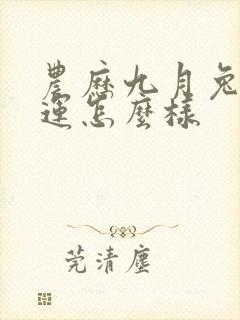 農歷九月兔
運怎麼樣
莞清塵